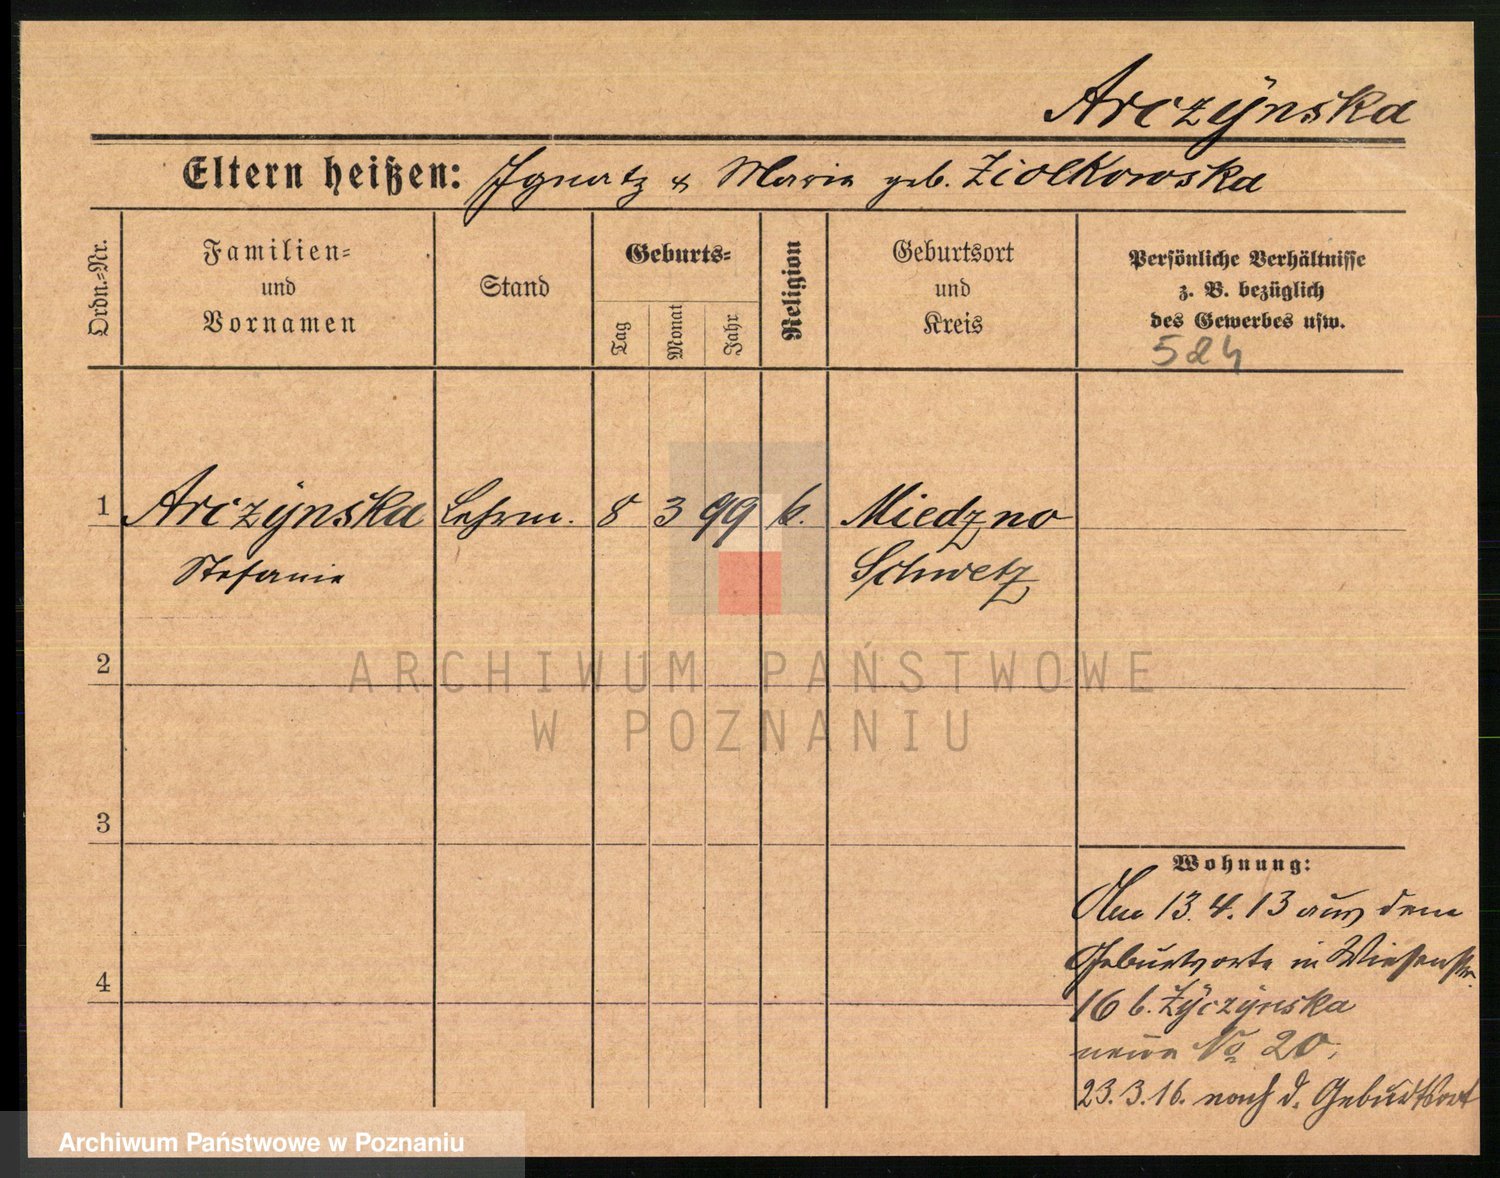 Arczÿnska
Eltern heißen: Ignatz & Marie geb. Ziolkowska
Ordn.=Nr.
Familien=
und
Vornamen
Stand
Geburts=
Tag
Monat
Jahr
Religion
Geburtsort
und
Kreis
Persönliche Verhältnisse
z. B. bezüglich
des Gewerbes usw.
524
1 Arczÿnska Lehrm. 8 3 99 k. Miedzno
Stefanie Schwetz
2
ARCHIWUM PAŃSTWOWE
W POZNANIU
3
4
Wohnung:
Am 13.4.13 aus dem
Geburtsorte in Wiesenstr.
16 b. Zÿczÿnska
neue No 20.
23.3.16. nach d. Geburtsort
Archiwum Państwowe w Poznaniu